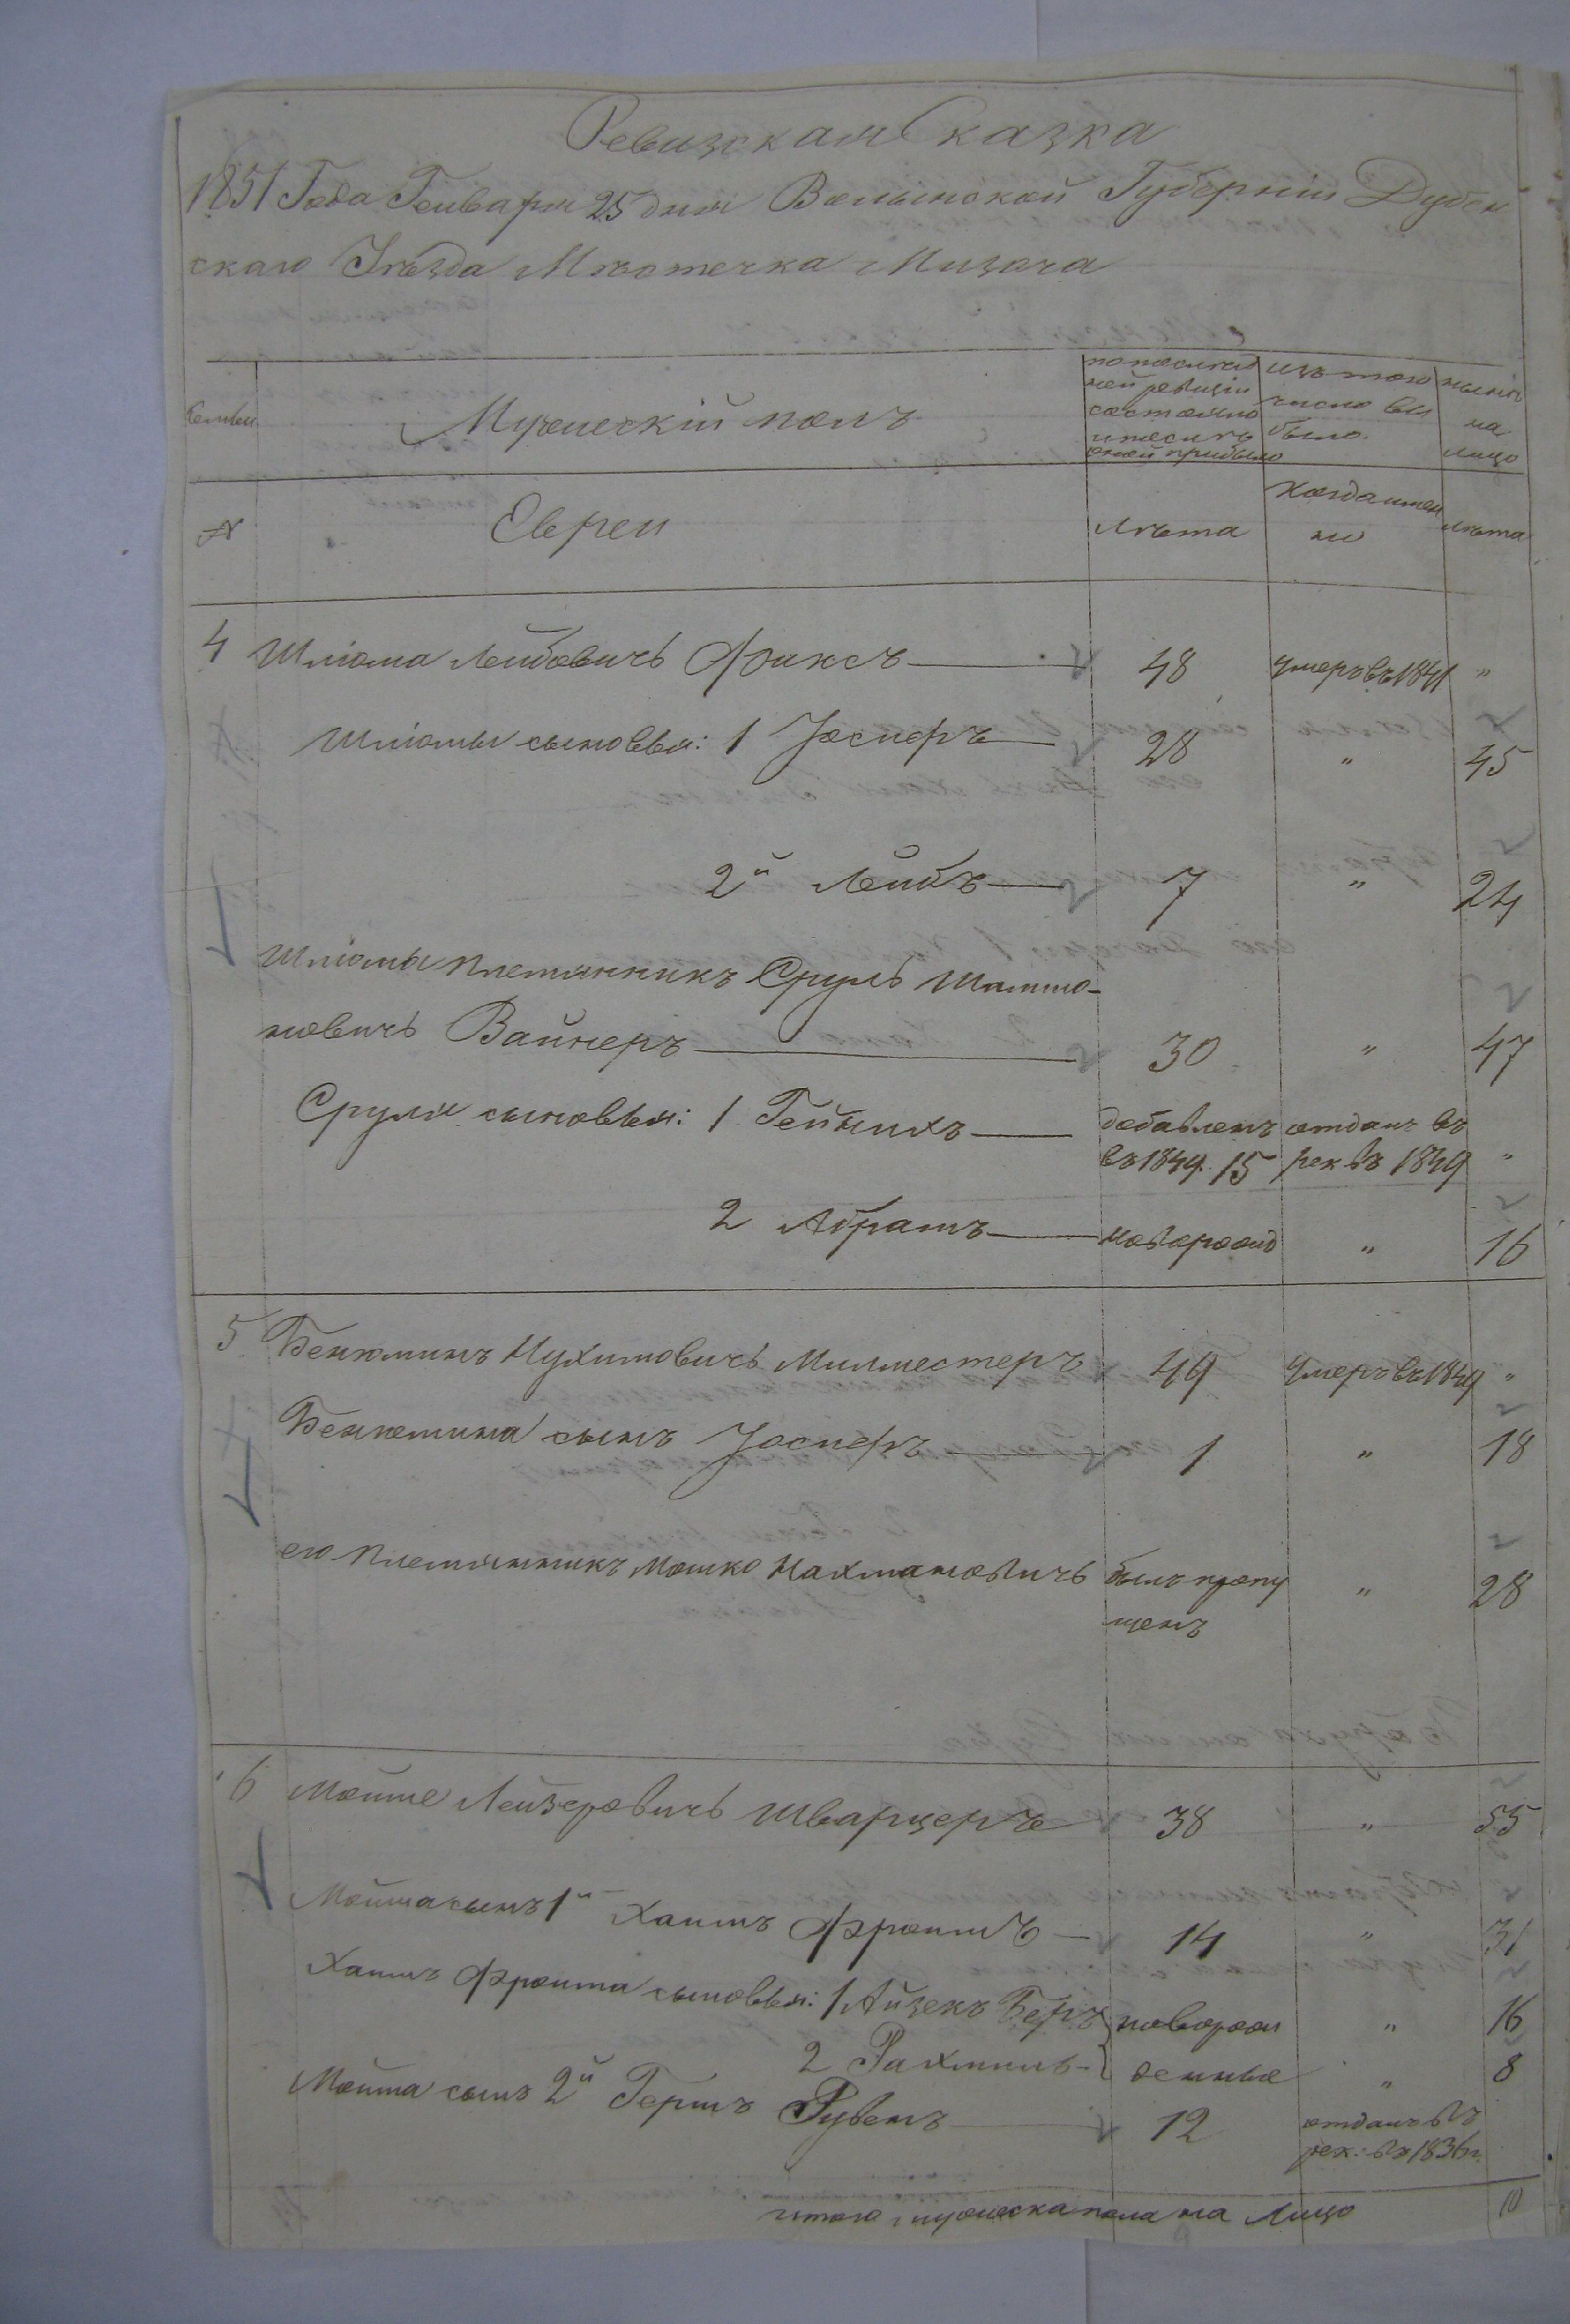 Ревизская Сказка
1851 Года Генваря 25 дня Волынской Губерніи Дубен
скаго Уѣзда Мѣстечка Мизоча
Семьи
Мужескій полъ
по послѣд
ней ревизіи
состояло
и послѣ
оной прибыло
изъ того
числа вы
было
нынѣ
на
лицо
№
Евреи
лѣта
когда имен
но
лѣта
4 Шліома Лейбовичъ Фиксъ 48 умеръ въ 1841 "
Шліомы сыновья: 1 Іосперъ 28 " 45
2й Лейбъ 7 " 24
Шліомы племянникъ Сруль Шлиомо-
мовичъ Вайнеръ 30 " 47
Сруля сыновья: 1 Гейнихъ добавленъ отданъ въ
въ 1849. 15 рек въ 1849 "
2 Абрамъ новорожд " 16
5 Бенюминъ Нухимовичъ Милместеръ 49 умеръ въ 1849 "
Бенюмина сынъ Іосперъ 1 " 18
его племянникъ Мошко Нахмановичъ былъ пропу " 28
щенъ
6 Мойше Лейзеровичъ Шварцеръ 38 " 55
Мойша сынъ 1й Хаимъ Фроимъ 14 " 31
Хаимъ Фроима сыновья: 1 Айзекъ Беръ новорож " 16
2 Рахмиль денные " 8
Мойша сынъ 2й Гершъ Рувенъ 12 отданъ въ
рек: въ 1836 г.
итого мужеска пола на Лицо 10